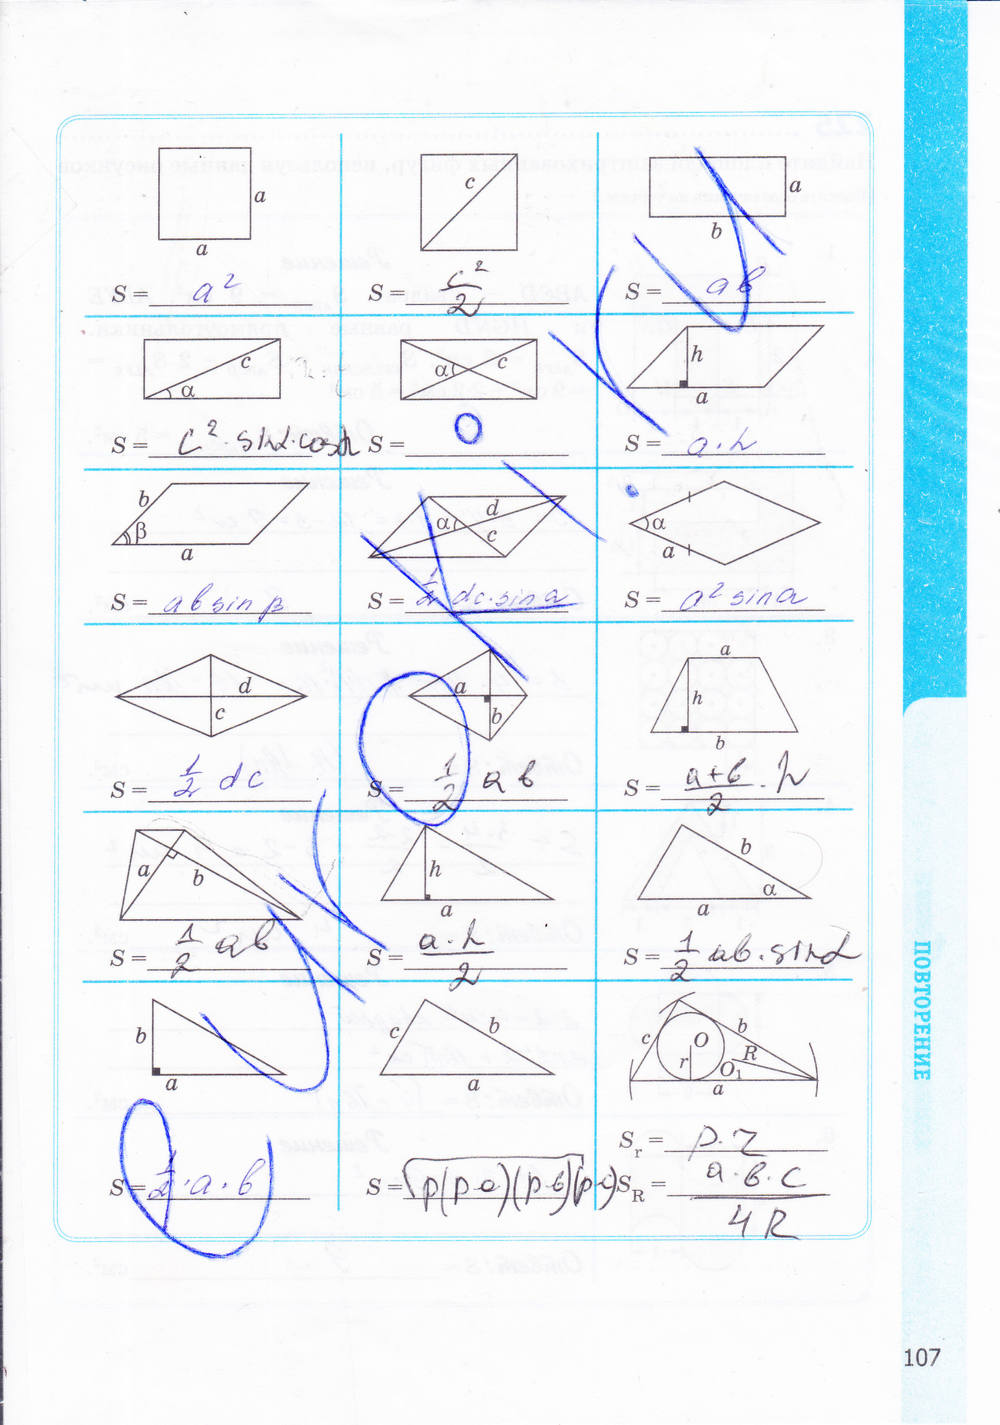 a
a
S = a²
c
S = c²/2
a
b
S = ab
c
α
S = c² · sinα · cosα
α
c
S = 0
h
a
S = a · h
b
β
a
S = ab sin β
d
α
c
S = 1/2 dc · sin α
α
a
S = a² sin α
d
c
S = 1/2 dc
a
b
S = 1/2 ab
a
h
b
S = (a+b)/2 · h
a
b
S = 1/2 ab
h
a
S = (a · h)/2
b
α
a
S = 1/2 ab · sin α
b
a
S = 1/2 · a · b
c
b
a
S = √p(p-a)(p-b)(p-c)
c
b
O
r
R
O₁
a
Sr = p · r
SR = (a · b · c)/4R
ПОВТОРЕНИЕ
107